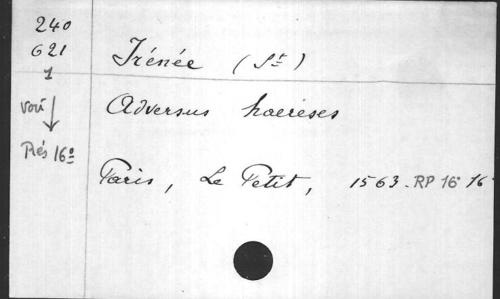 240
621
1
Irénée (St)
voir
Rés 16º
Adversus haereses
Paris, Le Petit, 1563. RP 16º 16º